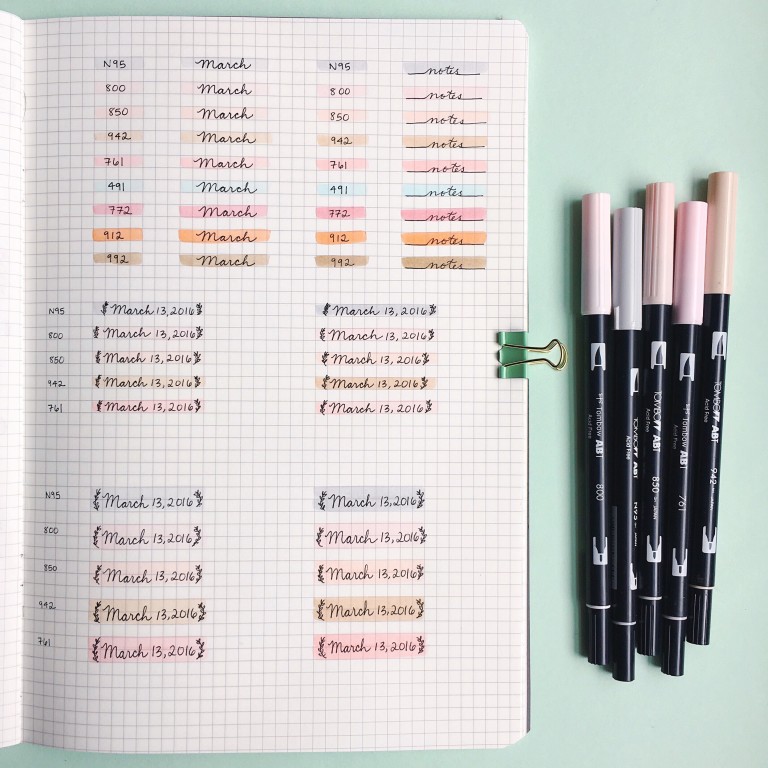 N95 March N95 notes
800 March 800 notes
850 March 850 notes
942 March 942 notes
761 March 761 notes
491 March 491 notes
772 March 772 notes
912 March 912 notes
992 March 992 notes
N95 March 13, 2016 March 13, 2016
800 March 13, 2016 March 13, 2016
850 March 13, 2016 March 13, 2016
942 March 13, 2016 March 13, 2016
761 March 13, 2016 March 13, 2016
N95 March 13, 2016 March 13, 2016
800 March 13, 2016 March 13, 2016
850 March 13, 2016 March 13, 2016
942 March 13, 2016 March 13, 2016
761 March 13, 2016 March 13, 2016
Tombow ABT 800
Acid Free
TOMBOW ABT N95
Acid Free
TOMBOW ABT 850
Acid Free
Tombow ABT 761
Acid Free
TOMBOW ABT 942
Acid Free